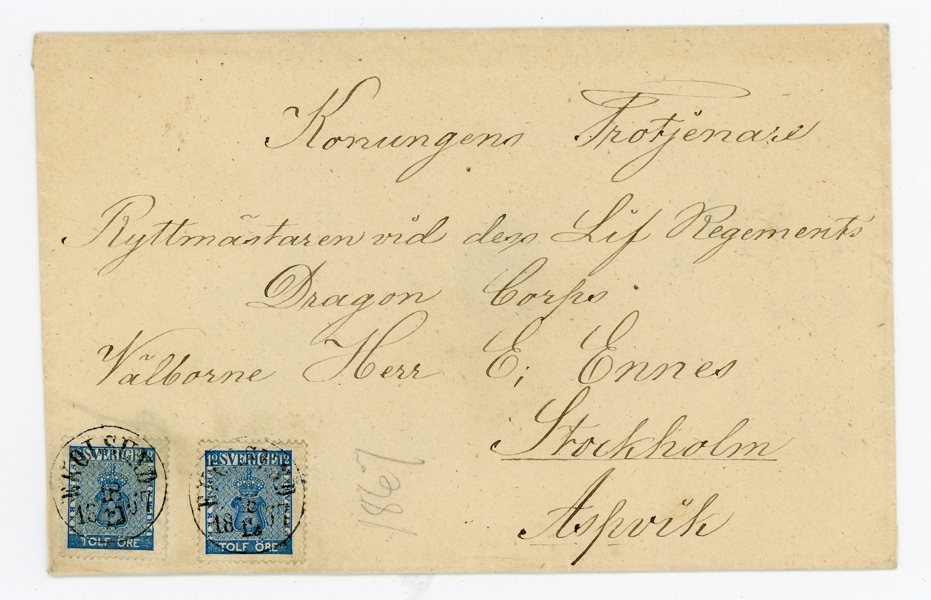 Konungens Trotjenare
Ryttmästaren vid dess Lif Regements
Dragon Corps
Välborne Herr E; Ennes
Stockholm
Aspvik
1867
SVERIGE
TOLF ÖRE
12 SVERIGE 12
TOLF ÖRE